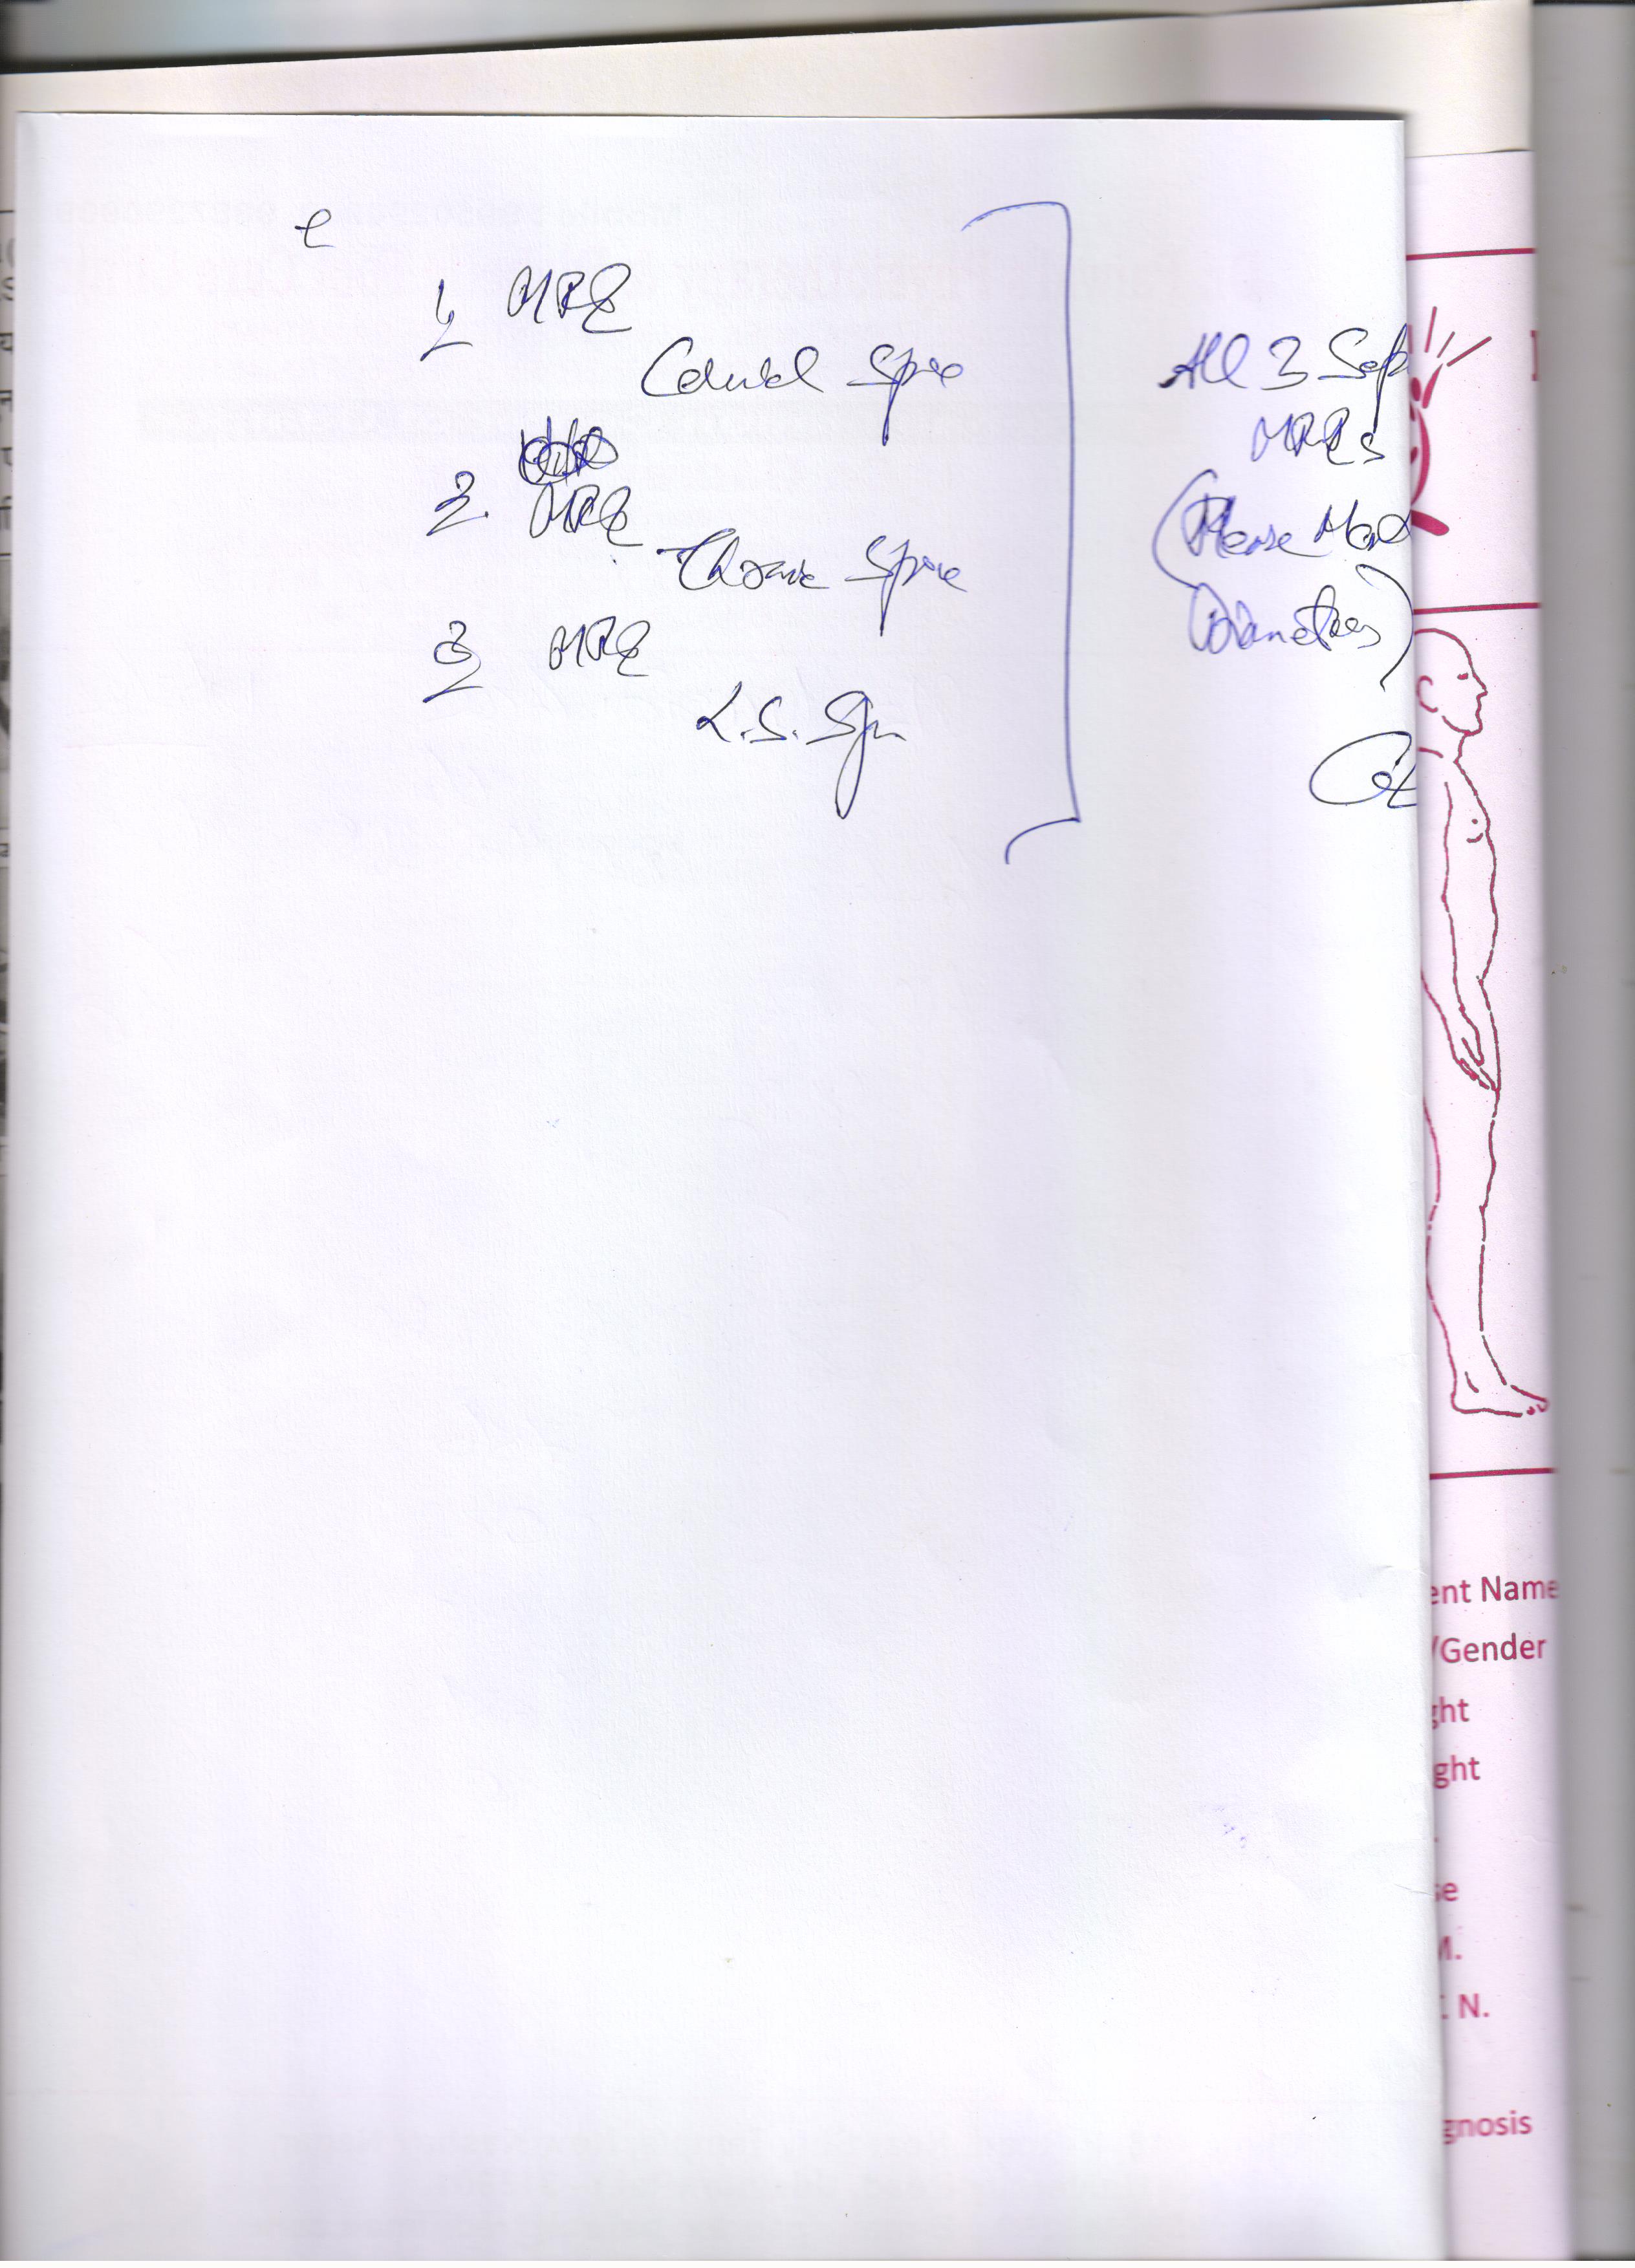 e
1, MRI
Cervical Spine
2. MRI
Thoracic Spine
3, MRI
L.S. Spn
All 3 Sep
MRIs
(Please Mark
Diameters)
ent Name
/Gender
ght
ght
se
M.
. N.
gnosis